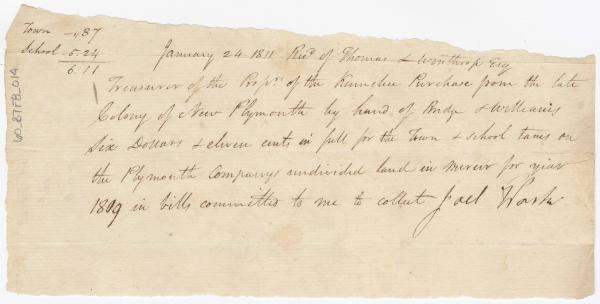 Town - ,,87
School - 5.24
6.11
January 24 1811 Recd of Thomas L Winthrop Esq
Treasurer of the Proprs of the Kennebec Purchase from the late
Colony of New Plymouth by hand of Bridge & Williams
Six Dollars & eleven cents in full for the Town & school taxes on
the Plymouth Companys undivided land in Mercer for year
1809 in bills committed to me to collect Joel
60_27FB_014